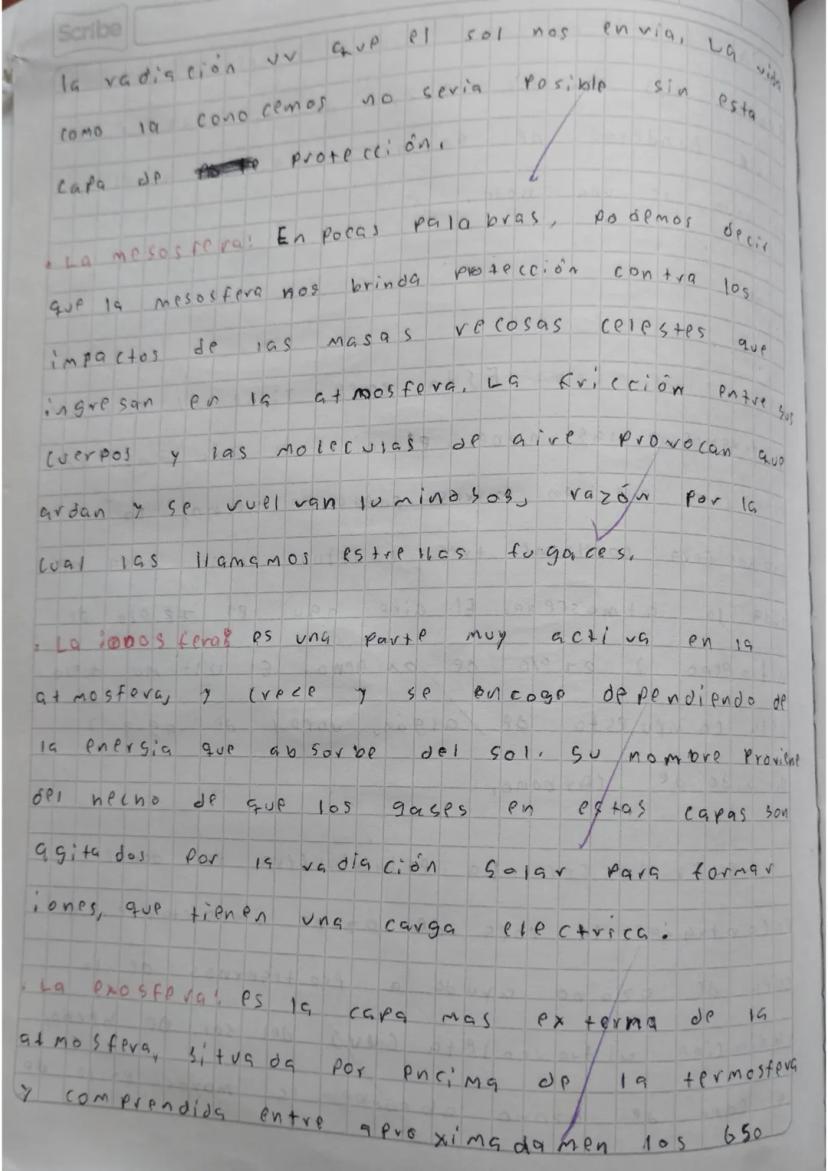 Scribe
la radiación uv que el sol nos envia, La vida
como la conocemos no seria posible sin esta
capa de protección.
• La mesosfera: En pocas palabras, podemos decir
que la mesosfera nos brinda protección contra los
impactos de las masas recosas celestes que
ingresan en la atmosfera. La fricción entre sus
cuerpos y las moleculas de aire provocan que
ardan y se vuelvan luminosos, razón por la
cual las llamamos estrellas fugaces.
• La ionosfera: es una parte muy activa en la
atmosfera, y crece y se encoge dependiendo de
la energia que absorbe del sol. su nombre proviene
del hecho de que los gases en estas capas son
agitados por la radiación solar para formar
iones, que tienen una carga electrica.
• La exosfera: es la capa mas externa de la
atmosfera, situada por encima de la termosfera
y comprendida entre aproximadamen los 650